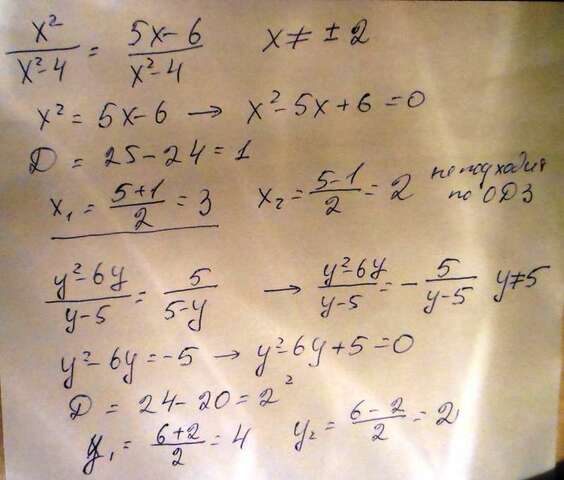 x²/(x²-4) = (5x-6)/(x²-4) x ≠ ±2
x² = 5x-6 → x²-5x+6=0
D = 25-24=1
x₁ = (5+1)/2 = 3 x₂ = (5-1)/2 = 2 не подходит по ОДЗ
(y²-6y)/(y-5) = 5/(5-y) → (y²-6y)/(y-5) = -5/(y-5) y≠5
y²-6y=-5 → y²-6y+5=0
D = 24-20=2²
y₁ = (6+2)/2 = 4 y₂ = (6-2)/2 = 2